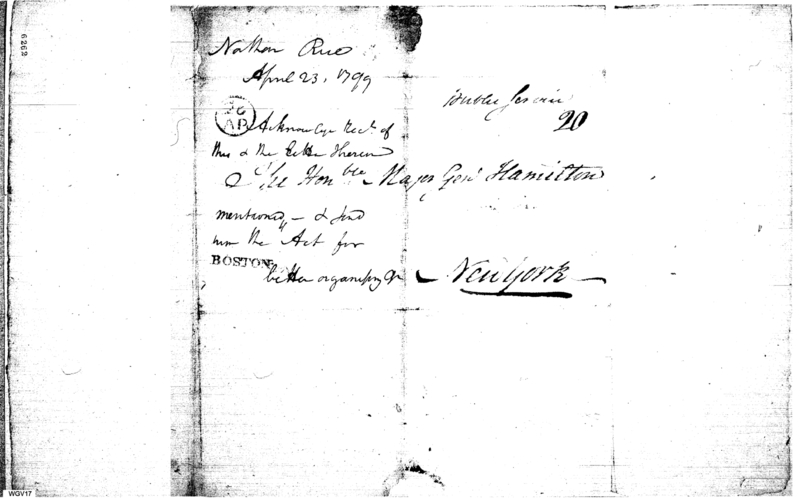 6262
Nathan Rice
April 23, 1799
26
AP
Acknowlege Rect of
this & the Letter therein
mentioned, — & send
him the "Act for
better organising &c
BOSTON
Public Service
20
The Honble Major Genl Hamilton
New York
WGV17